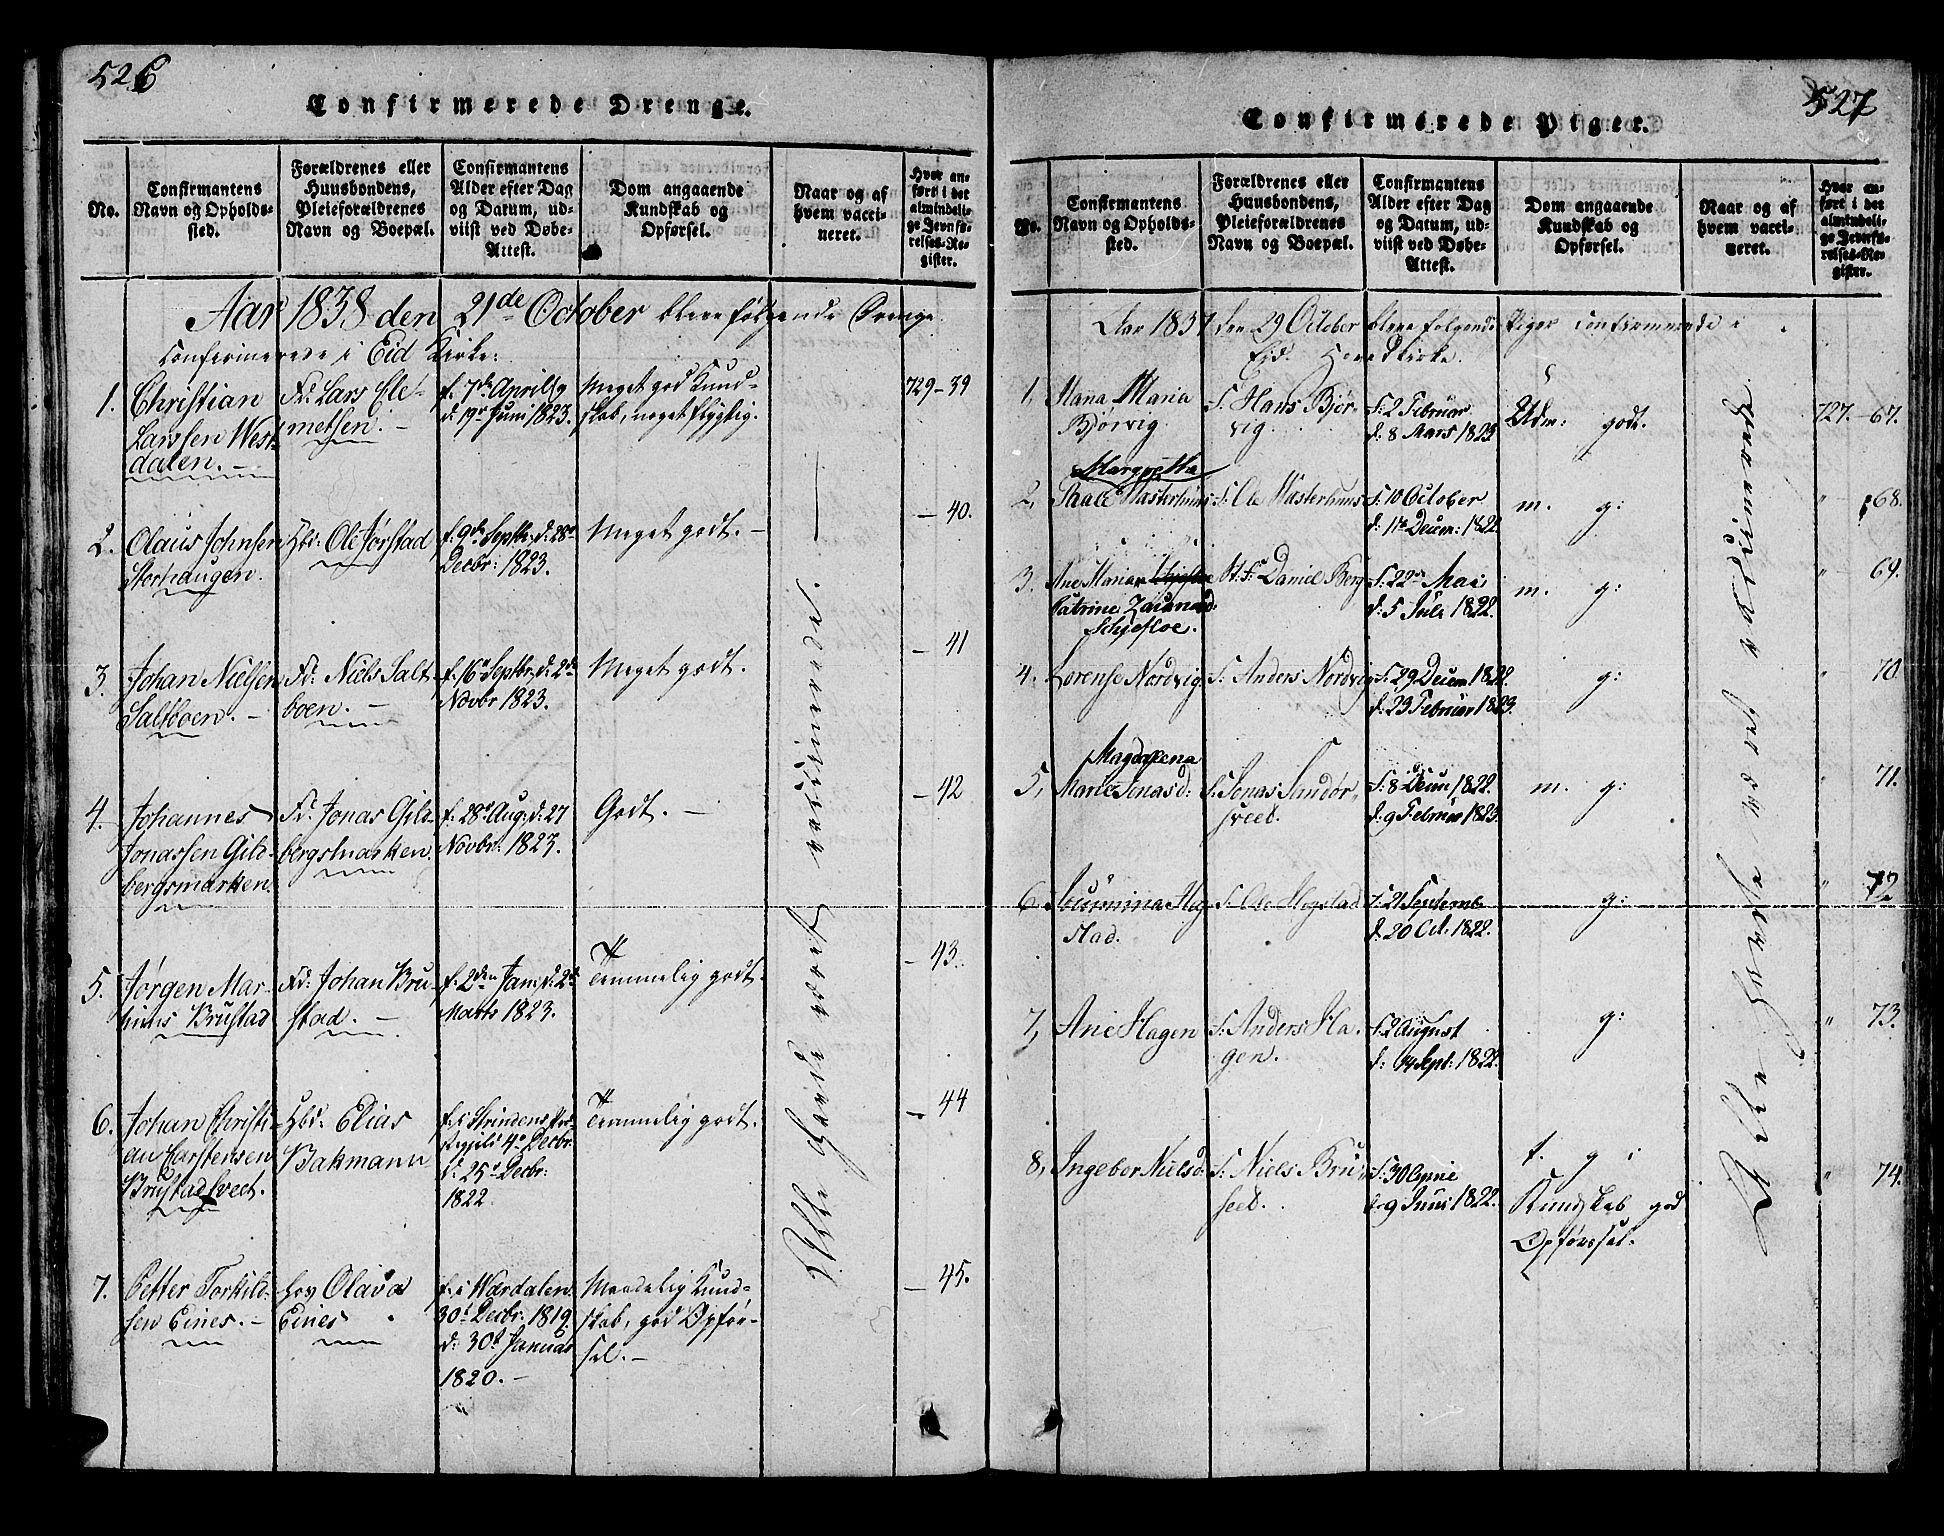 526
Confirmerede Drenge.
No.
Confirmantens
Navn og Opholds-
sted.
Forældrenes eller
Huusbondens,
Pleieforældrenes
Navn og Boepæl.
Confirmantens
Alder efter Dag
og Datum, ud-
viist ved Døbe-
Attest.
Dom angaaende
Kundskab og
Opførsel.
Naar og af
hvem vacci-
neret.
Hvor an-
ført i det
almindeli-
ge Jevnfø-
relses-Re-
gister.
Aar 1838 den 21de October bleve følgende Drenge
confirmerede i Eid Kirke:
1.
Christian
Larssen West-
dalen. –
Fd: Lars Cle-
metsen. –
f. 7de April
d. 19 Juni 1823.
Meget god Kund-
skab, noget flygtig.
729 – 39
2.
Olaus Johnsen
Storhaugen.
Hbd: Ole Jørstad
f. 9de Septbr: d. 28
Decbr: 1823.
Meget godt. –
– 40.
3.
Johan Nielsen
Saltboen. –
Fd: Niels Salt-
boen. –
f. 16 Septbr. d. 2de
Novbr 1823.
Meget godt.
– 41
4.
Johannes
Jonassen Gild-
bergsmarken.
Fd: Jonas Gild-
bergsmarken.
f. 28 Aug: d. 27
Novbr: 1823.
Godt. –
– 42
5.
Jørgen Mar-
Brustad
Fd: Johan Bru-
stad. –
f. 2den Jan: d. 2de
Marts 1823.
Temmelig godt.
– 43.
6.
Johan Christi-
an Carstensen
Brustadsveet.
Hbd: Elias
Bakmann
f. i Strindens
4 Decbr.
d. 25 Decbr:
1822.
Temmelig godt.
– 44
7.
Petter Torkild-
sen Eines. –
Olava
Eines
f. i Værdalen
30 Decbr: 1819.
d. 30 Januar
1820. –
Maadelig Kund-
skab, god Opfør-
sel. –
– 45.
Alle havde været vaccinerede.
527
Confirmerede Piger.
No.
Confirmantens
Navn og Opholds-
sted.
Forældrenes eller
Huusbondens,
Pleieforældrenes
Navn og Boepæl.
Confirmantens
Alder efter Dag
og Datum, ud-
viist ved Døbe-
Attest.
Dom angaaende
Kundskab og
Opførsel.
Naar og af
hvem vacci-
neret.
Hvor an-
ført i det
almindeli-
ge Jevnfø-
relses-Re-
gister.
Aar 1837 den 29 October bleve følgende Piger confirmerede i
Eid Hovedkirke.
1.
Maria
Bjørvig.
F. Hans Bjør-
vig.
f. 2 Februar
d. 8 Mars 1823
Udm: godt.
727. 67.
Margretha
2.
F. Ole
f. 10 October
d: 11 Decem: 1822
m. g:
" 68.
3.
Ane Maria
Catrine
Schjefloe.
Daniel Berg
f: 22 Mai
d: 5 Juli 1822.
m. g:
" 69.
4.
Lorense Nordvig
F: Anders Nordvig
f: 29 Decem 1822
d: 23 Februar 1823.
g:
" 70
Magdalena
5,
Marie Jonasd:
F. Jonas Sundør-
sveed.
f: 8 Decem 1822.
d. 9 Februar 1823.
m. g:
" 71.
6.
Hog-
stad.
F: Ole Hogstad
f. 21 Septemb
d. 20 Oct. 1822.
g:
" 72
7,
Ane Hagen
F: Anders Ha-
gen.
f: 2 August
d: 14 Sept: 1822.
g:
" 73.
8,
Ingebor Nielsd
F: Niels Bru-
seed.
f: 30
d. 9 Juni 1822.
t. g i
Kundskab god
Opførsel.
" 74.
Alle have været vaccinerede